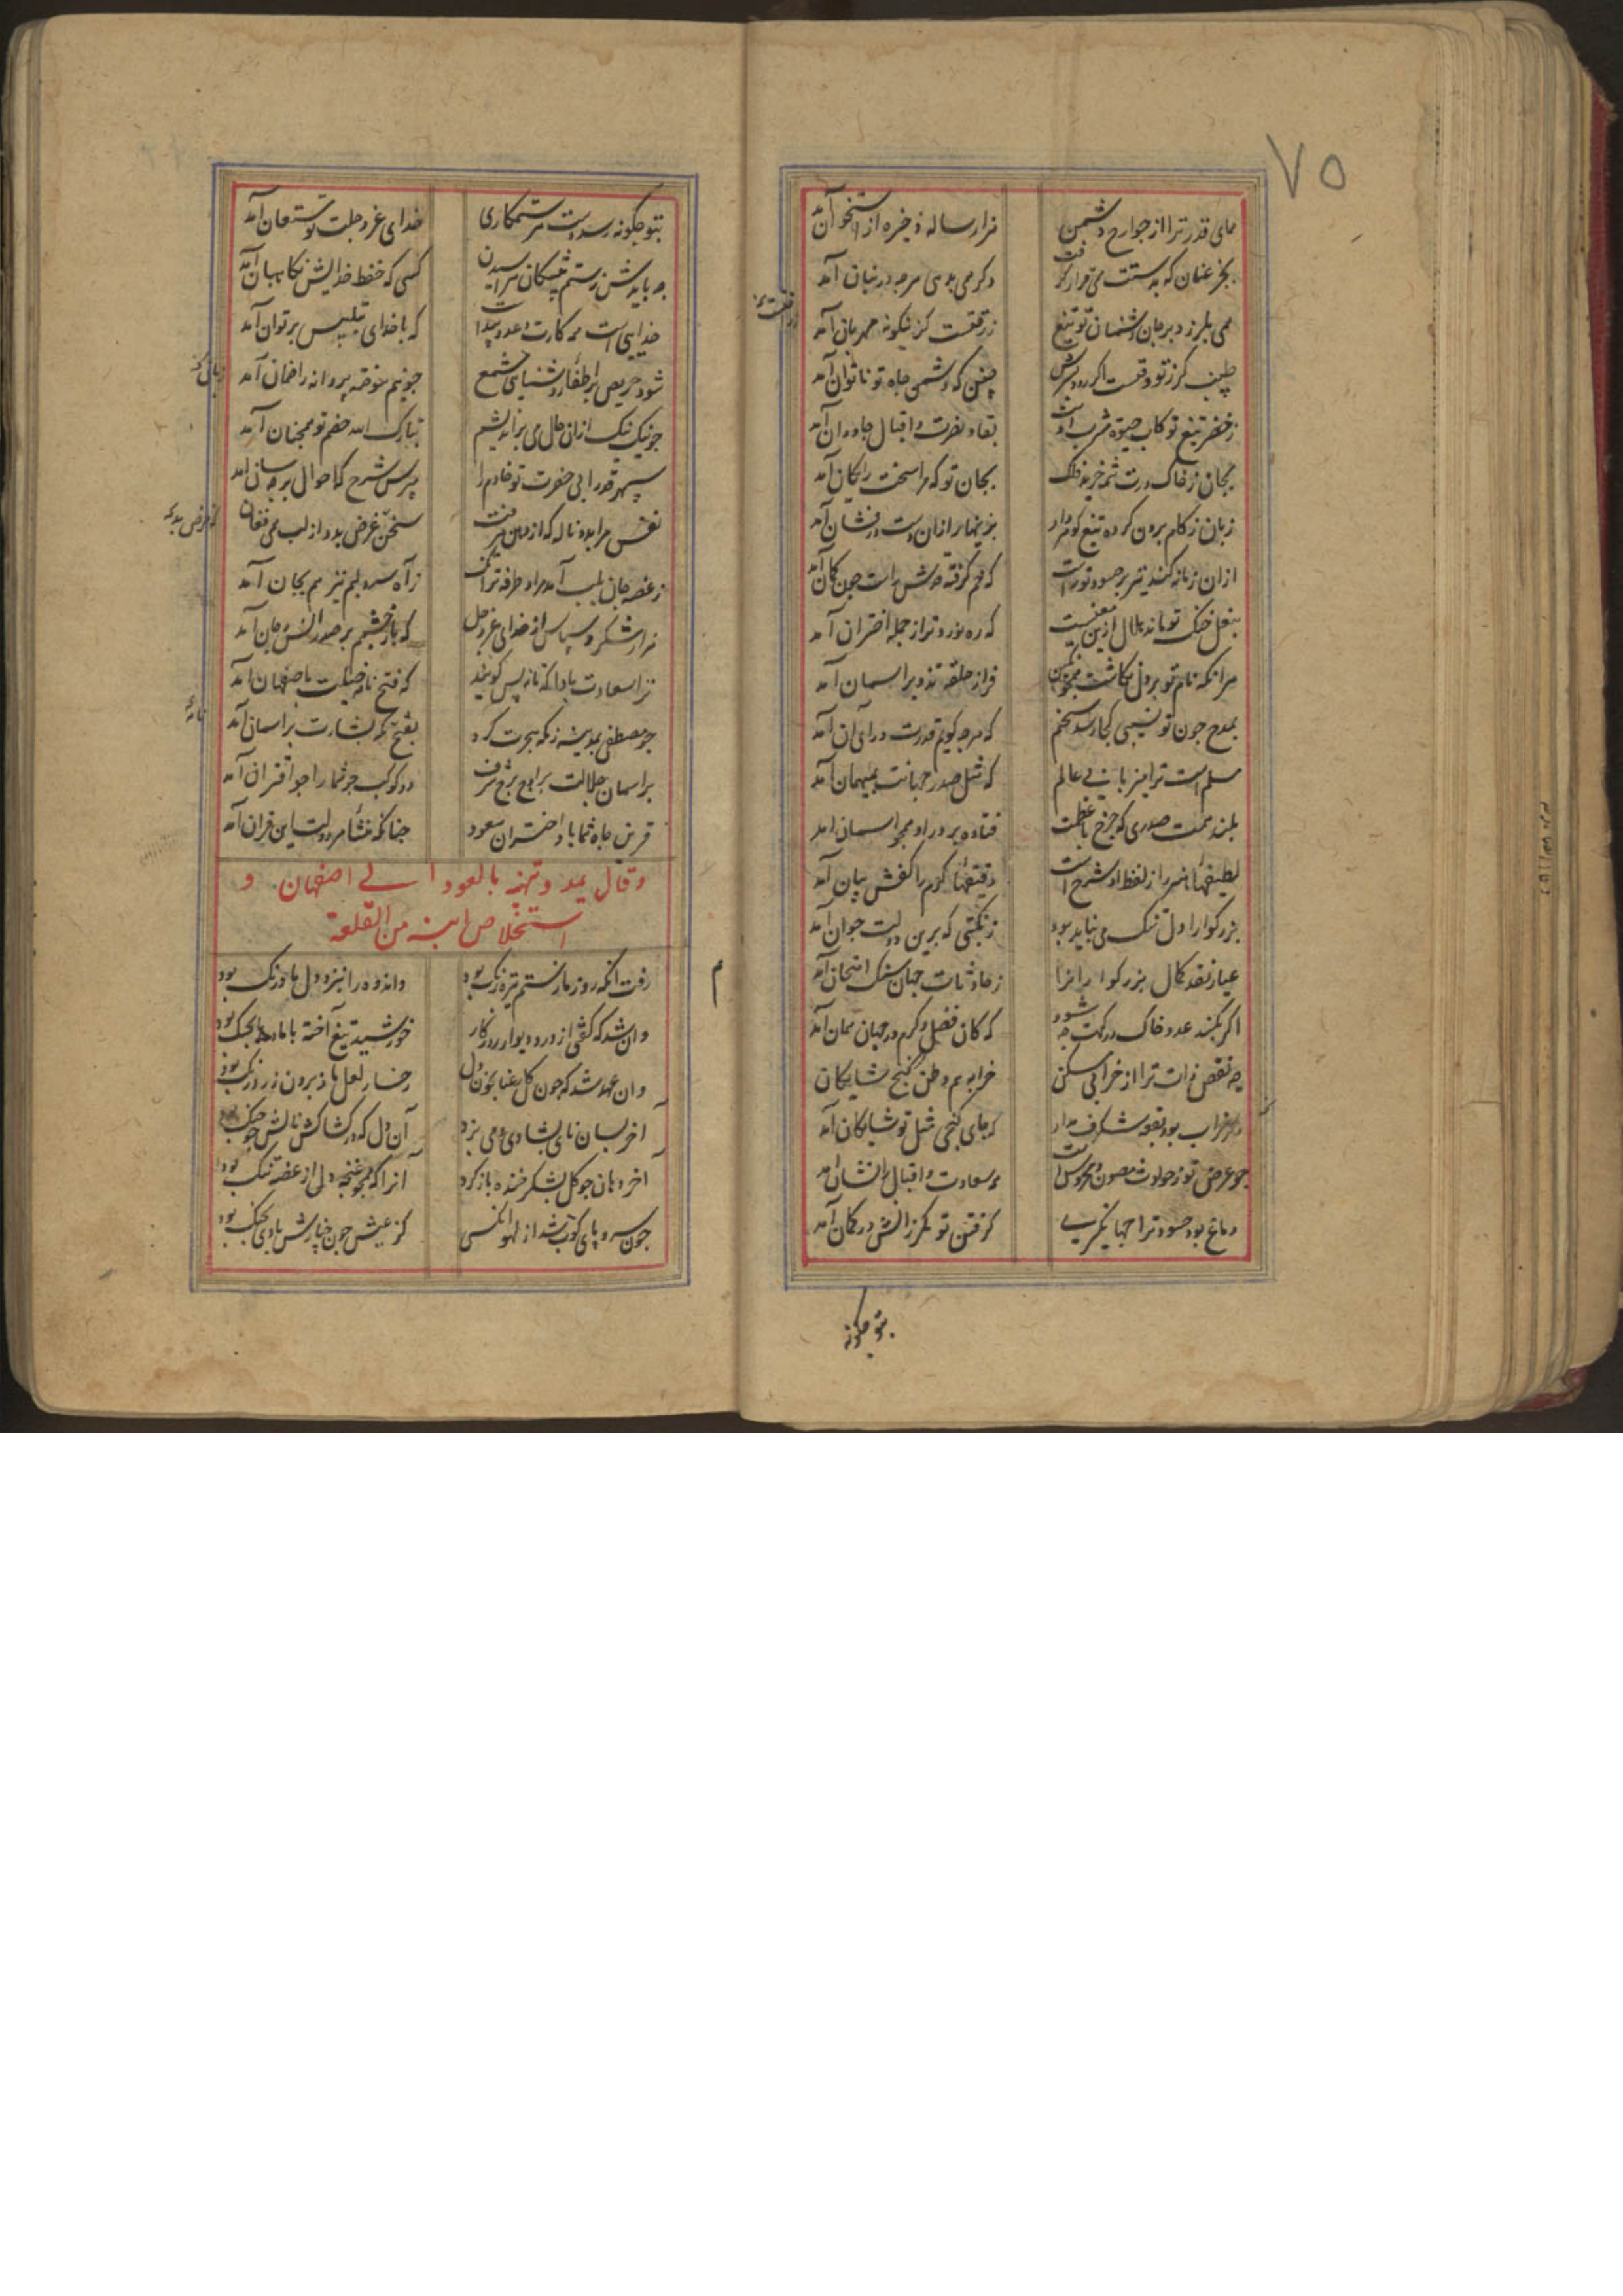 ۷۵
همای قدر ترا از جوارح دشمن هزار ساله ذخیره از استخوان آمد
بجز عنان که بدستت می قرار گرفت دگر می بدی هرچه در بنان آمد
همی بلرزد بر جان دشمنان تو تیغ ز رقتست کزینگونه مهربان آمد
چنین که دشمن جاه تو ناتوان آمد
ز خضر تیغ تو کاب حیوة مشرب اوست بقاء نصرت و اقبال جاودان آمد
بجان ز خاک درت شمه خرید فلک بجان تو که مرا سخت رایگان آمد
زبان ز کام برون کرده تیغ کوهردار بزینهار از ان دست درفشان آمد
ازان زمانه کند تیر بر حسود تو راست که خم گرفته قدش راست چون کمان آمد
بنعل خنگ تو ماند هلال ازین معنیست که ره نورد تر از جمله اختران آمد
هر آنکه نام تو بر دل نگاشت همچو نگین فراز حلقه تدویر آسمان آمد
بمدح چون تویی کجا رسد سخنم که هرچه گویم قدرت ورای آن آمد
مسلم است ترا میزبانی عالم که مثل صدر جهانت بمیهمان آمد
بلند همت صدری که چرخ با عظمت فتاده بر در او همچو آسمان آمد
لطیفهاء هنر را ز لفظ او شرح است دقیقهاء کرم را کفش بیان آمد
بزرگوارا دل تنگ می نباید بود ز نکبتی که برین دولت جوان آمد
عیار نقد کمال بزرگوارانرا ز حادثات جهان سنگ امتحان آمد
اگر بکند عدو خاک درگهت چه شود که کان فضل و کرم در جهان همان آمد
چه نقص ذات ترا از خرابی مسکن خرابه هم وطن گنج شایگان
خراب بود بقعه شگرف مدار که جای گنجی مثل تو شایگان آمد
چو عرض تو ز حوادث مصون و محروس است سعادت و اقبال را نشان آمد
دماغ بود حسود ترا جهانگیری گرفتن تو مگر زانش در گمان آمد
بتو چگونه
بتو چگونه رسد دست هر ستمکاری خدای عز و جلت تو مستعان آمد
چه بایدش ز ستم پیشگان هراسیدن کسی که حفظ خدایش نگاهبان آمد
خداییست همه کارت و عدو پیداست که با خدای تلبیس بر توان آمد
شود حریص بر اطفاء روشنیای شمع چو نیم سوخته پروانه را ضمان آمد
چو نیک نیک ازان حال می براندیشم تبارک الله خصم تو همچنان آمد
سپهر قدرا بی حضرت تو خادم را مپرس شرح که احوال بر چه سان آمد
نفس مرا بده ناله که از دهن میرفت سخن غرض بد و از لب همی فغان
ز غصه جان بلب آمد مرا و طرفه تر آنک ز آه سرد لبم نیز هم بجان آمد
هزار شکر و سپاس از خدای عز و جل که باز چشمم بر صدر انس و جان آمد
هزار سعادت بادا که باز پس گویند که فتح نامه جنت باصفهان آمد
چو مصطفی بمدینه ز مکه هجرت کرد بفتح مکه بشارت بر آسمان آمد
بر آسمان جلالت بر اوج برج شرف دو کوکب چو شما را چو اقتران آمد
قرین جاه شما باد اختران سعود چنانکه منشاء هر دولت این قران آمد
وقال یمدحه و تهنیه بالعود الی اصفهان و
استخلاص ابنه من القلعة
رفت آنکه روز ما ز ستم تیره رنگ بود و اندوه را نبرد دل ما درنگ بود
وان شد که گفتی از در و دیوار روزگار خورشید تیغ آخته با ما بجنگ بود
وان عهد شد که چون گل رعنا بخون دل رخسار لعل ما ز برون زرد رنگ بود
آخر بسان نای بشادی دمی بزد آن دل که در کشاکش نالش چو چنگ بود
آخر دهان چو گل بشکر خنده باز کرد آنرا که همچو غنچه دلی از غصه تنگ بود
چون سرو پای کوب شد از لهو آنکسی کز عیش چون چنارش بادی بچنگ بود